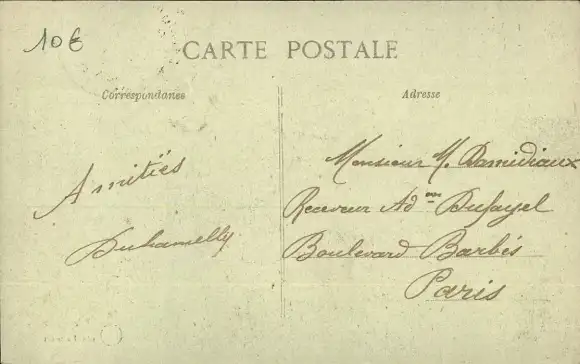 10€
CARTE POSTALE
Correspondance
Adresse
Amitiés
Duhamelly
Monsieur M. Damidiaux
Receveur Ad.on Dufayel
Boulevard Barbès
Paris